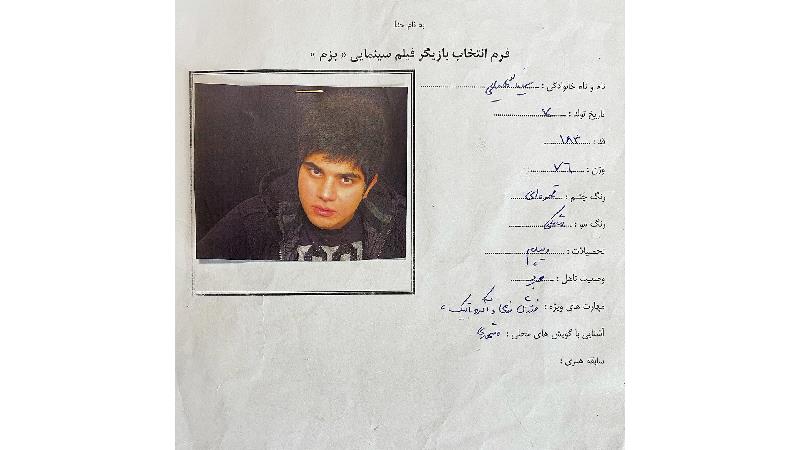 به نام خدا
فرم انتخاب بازیگر فیلم سینمایی « بزم »
نام و نام خانوادگی :
تاریخ تولد : ۷
قد : ۱۸۳
وزن : ۷۶
رنگ چشم : قهوه‌ای
رنگ مو : مشکی
تحصیلات : دیپلم
وضعیت تاهل :
مهارت های ویژه :
آشنایی با گویش های محلی : مشهدی
سابقه هنری :